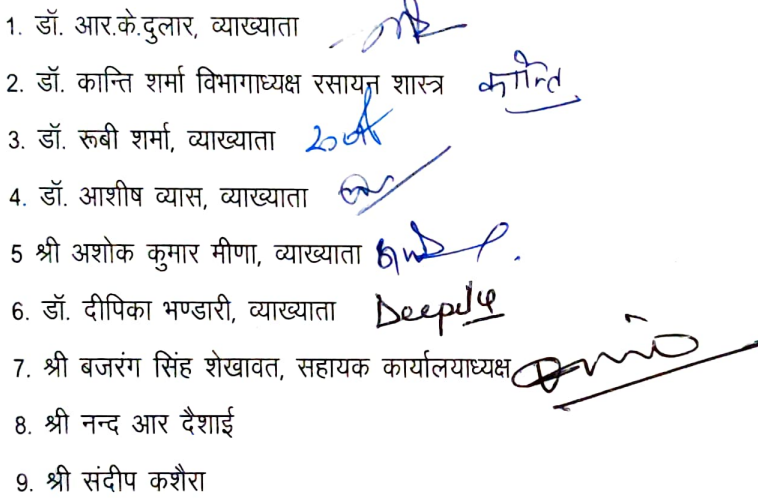 1. डॉ. आर.के.दुलार, व्याख्याता
2. डॉ. कान्ति शर्मा विभागाध्यक्ष रसायन शास्त्र कान्ति
3. डॉ. रूबी शर्मा, व्याख्याता
4. डॉ. आशीष व्यास, व्याख्याता
5 श्री अशोक कुमार मीणा, व्याख्याता
6. डॉ. दीपिका भण्डारी, व्याख्याता
7. श्री बजरंग सिंह शेखावत, सहायक कार्यालयाध्यक्ष
8. श्री नन्द आर दैशाई
9. श्री संदीप कशैरा